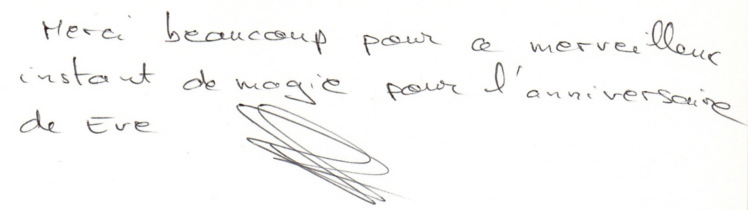 Merci beaucoup pour ce merveilleux
instant de magie pour l'anniversaire
de Eve